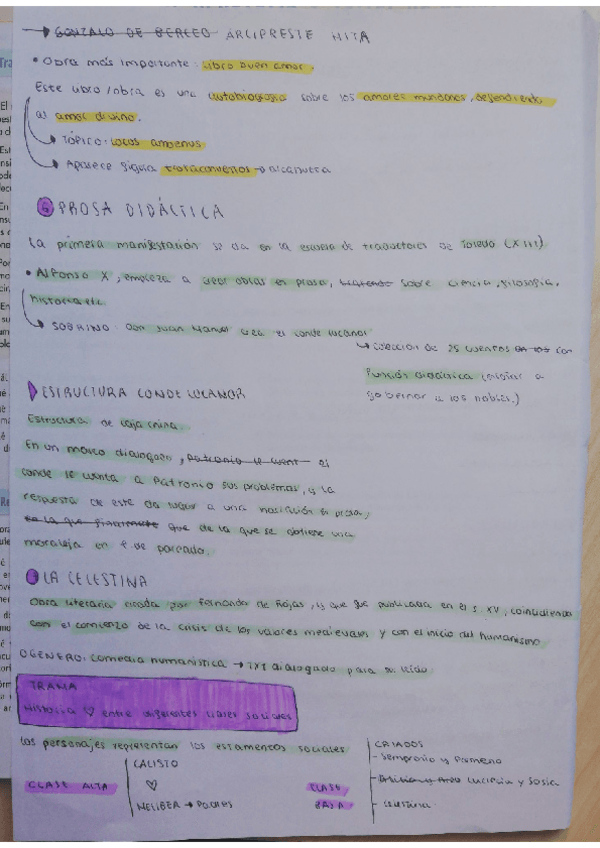 → GONZALO DE BERCEO ARCIPRESTE HITA
• Obra más importante: Libro Buen amor.
Este libro/obra es una autobiografía sobre los amores mundanos, defendiendo
al amor divino.
Tópico: Locus amoenus
Aparece figura trotaconventos → alcahueta
⑥ PROSA DIDÁCTICA
La primera manifestación se da en la escuela de traductores de Toledo (XIII)
• Alfonso X, empieza a crear obras en prosa, sobre ciencia, filosofía,
historia etc
SOBRINO: Don Juan Manuel crea el conde lucanor
↳ colección de 25 cuentos con
función didáctica (enseñar a
gobernar a los nobles.)
ESTRUCTURA CONDE LUCANOR
Estructura de caja china.
En un marco dialogado, Patronio le cuent el
conde le cuenta a Patronio sus problemas, y la
respuesta de este da lugar a una narración en prosa,
de la que finalmente que de la que se obtiene una
moraleja en f. de pareado.
LA CELESTINA
Obra literaria creada por Fernando de Rojas, es que fue publicada en el s. XV, coincidiendo
con el comienzo de la crisis de los valores medievales y con el inicio del humanismo.
GENERO: comedia humanística → TXT dialogado para ser leído
TRAMA
Historia ♡ entre diferentes clases sociales
Los personajes representan los estamentos sociales
CRIADOS
- Sempronio y Parmeno
CALISTO
- Lucrecia y Sosia
CLASE ALTA
♡
CLASE
BAJA
MELIBEA →
- Celestina